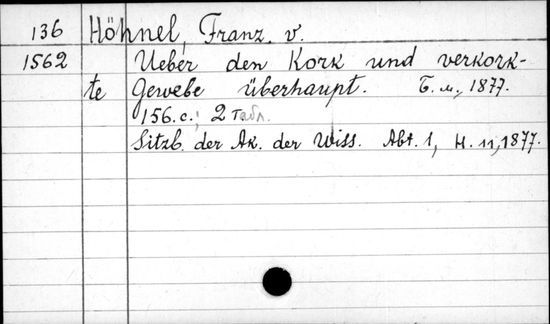 136 Höhnel, Franz. v.
1562 Ueber den Kork und verkork-
te Gewebe überhaupt. Б. м., 1877.
156. с.; 2 табл.
Sitzb. der Ak. der Wiss. Abt. 1, H. 11, 1877.